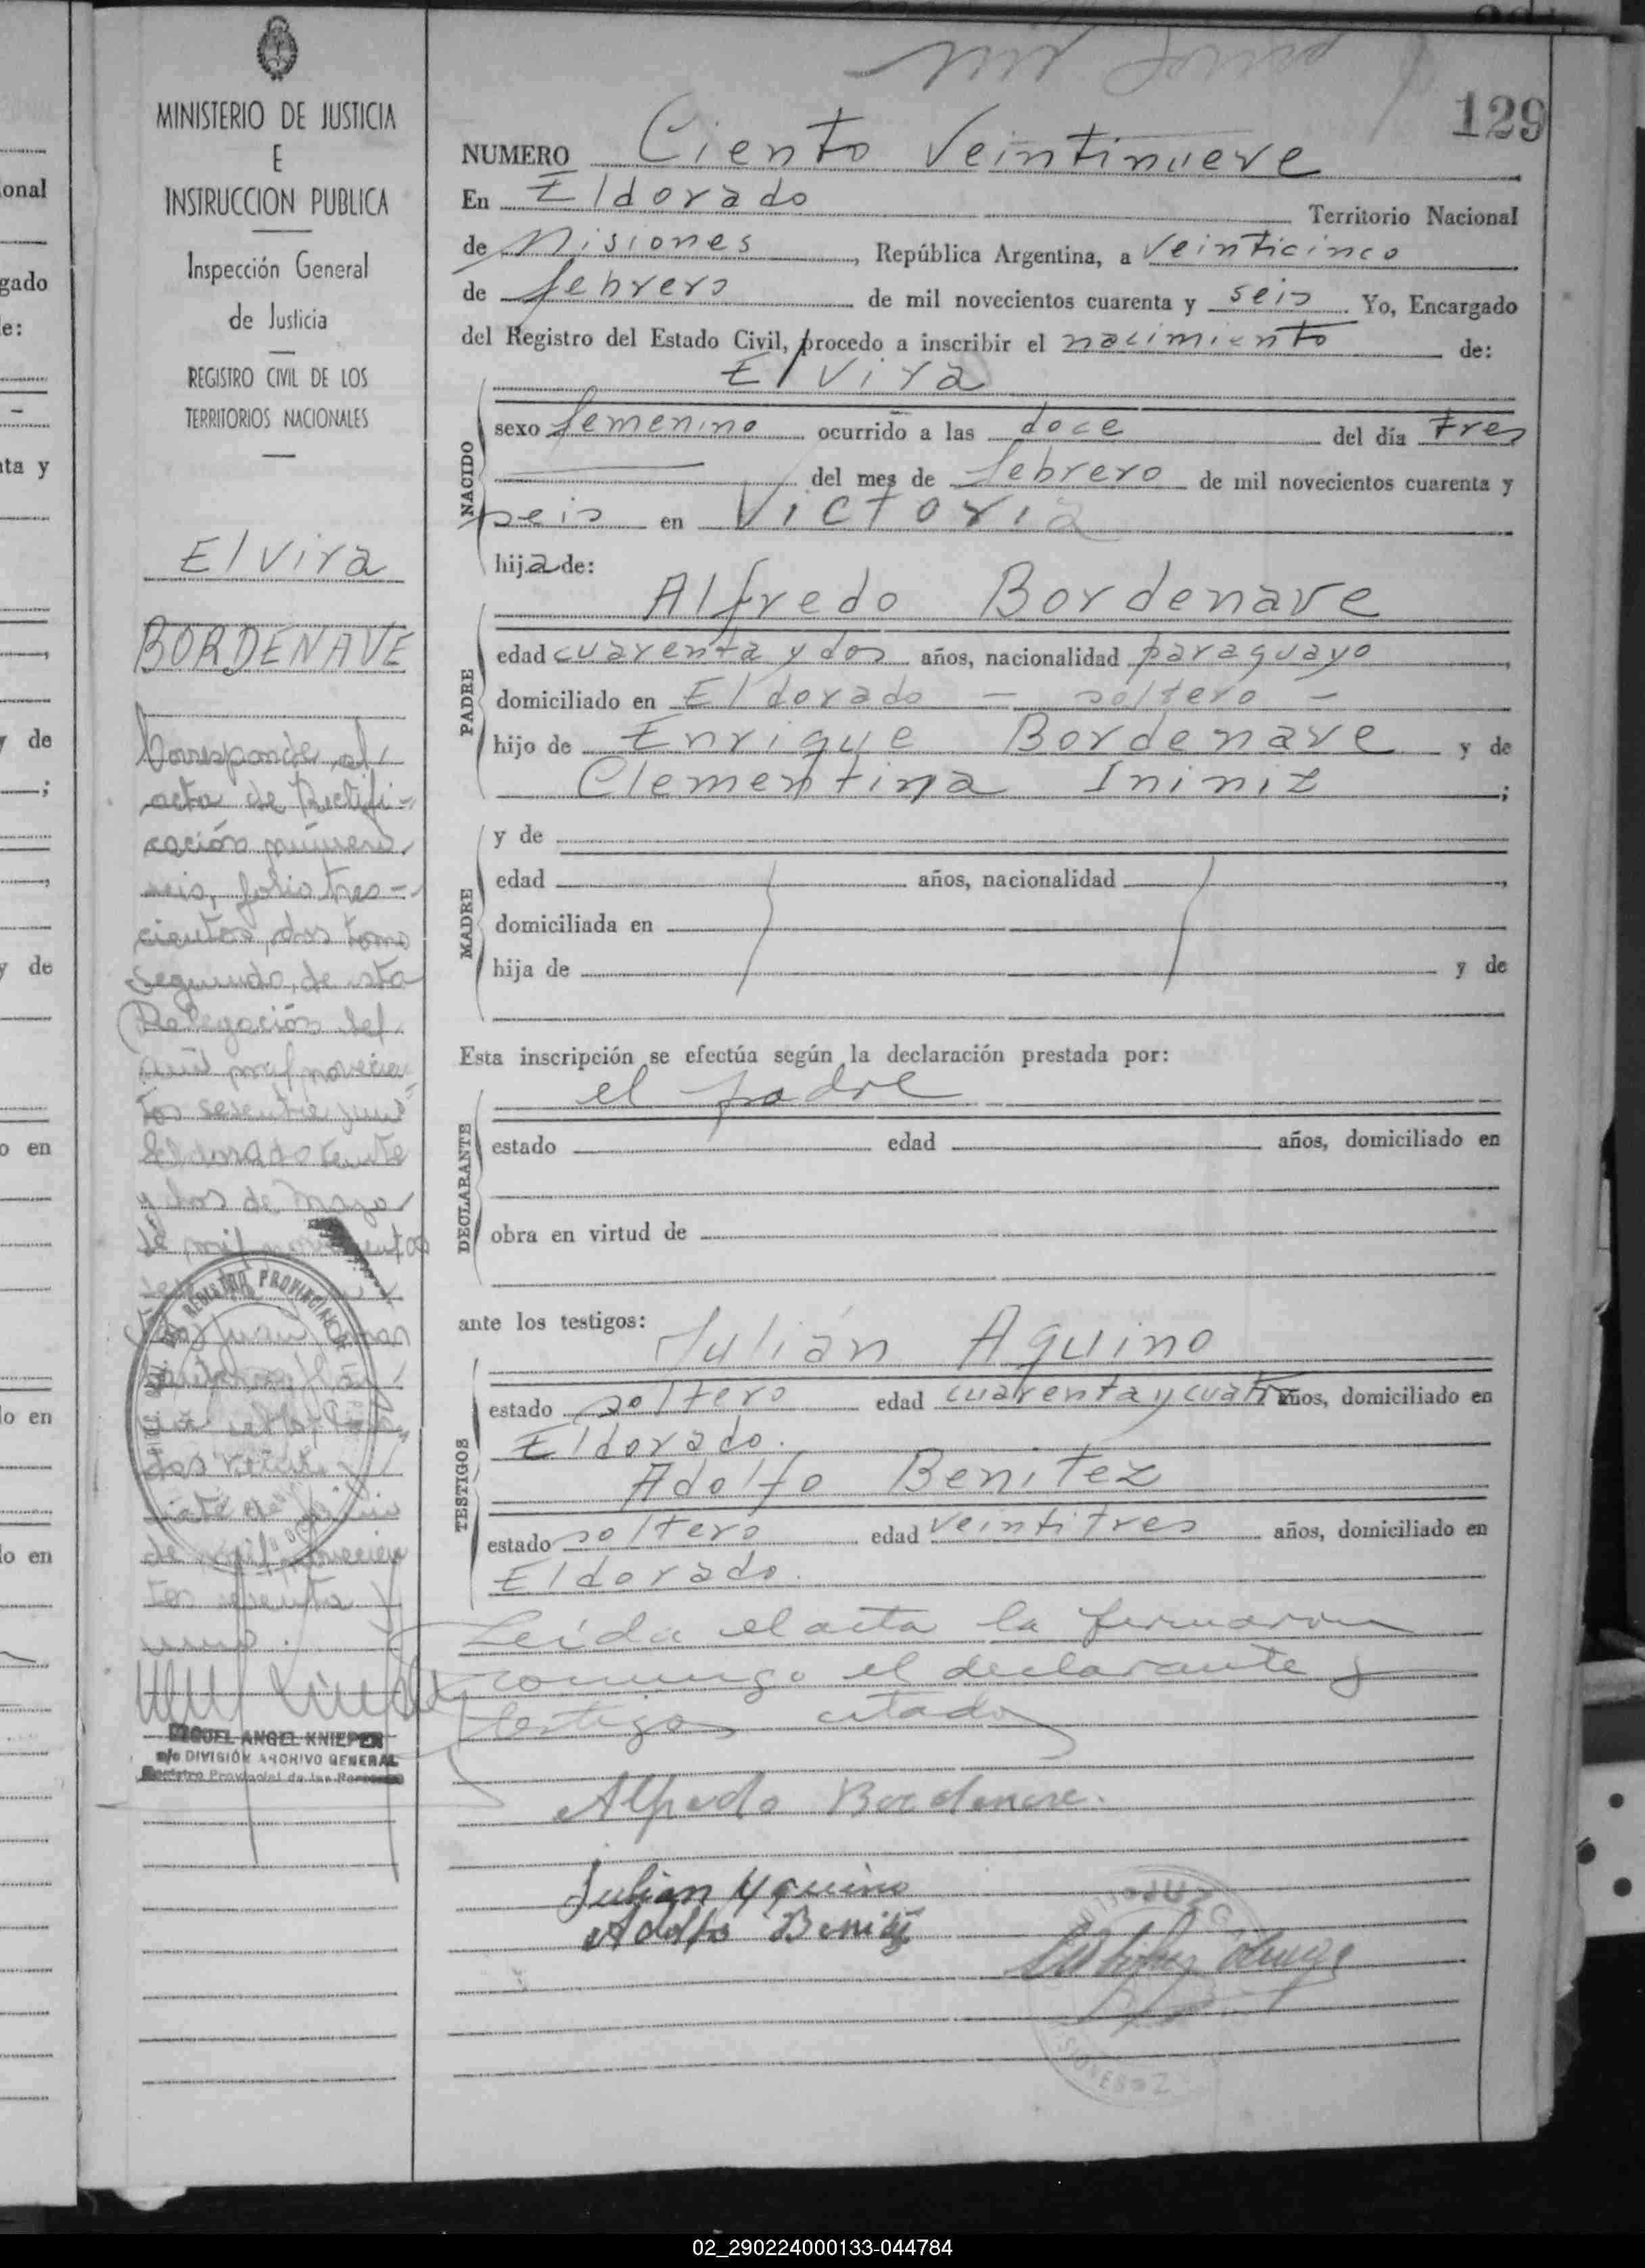 129
MINISTERIO DE JUSTICIA
E
INSTRUCCION PUBLICA
Inspección General
de Justicia
REGISTRO CIVIL DE LOS
TERRITORIOS NACIONALES
Elvira
BORDENAVE
Corresponde al
acta de Rectifi-
cación número
seis, folio tres-
cientos dos tomo
segundo, de esta
Delegación del
mil novecien-
tos sesenta y uno
Eldorado veinte
y dos de Mayo
de mil novecientos
de mil novecien
tos sesenta y
uno.
MIGUEL ANGEL KNIEPER
a/c DIVISIÓN ARCHIVO GENERAL
Registro Provincial de las Personas
NUMERO Ciento Veintinueve
En Eldorado Territorio Nacional
de Misiones, República Argentina, a Veinticinco
de febrero de mil novecientos cuarenta y seis. Yo, Encargado
del Registro del Estado Civil, procedo a inscribir el nacimiento de:
NACIDO
Elvira
sexo femenino ocurrido a las doce del día tres
del mes de febrero de mil novecientos cuarenta y
seis en Victoria
hija de:
PADRE
Alfredo Bordenave
edad cuarenta y dos años, nacionalidad paraguayo,
domiciliado en Eldorado - soltero -
hijo de Enrique Bordenave y de
Clementina Ininiz;
MADRE
y de
edad años, nacionalidad,
domiciliada en
hija de y de
Esta inscripción se efectúa según la declaración prestada por:
DECLARANTE
el padre
estado edad años, domiciliado en
obra en virtud de
ante los testigos:
TESTIGOS
Julián Aquino
estado soltero edad cuarenta y cuatro años, domiciliado en
Eldorado.
Adolfo Benitez
estado soltero edad veintitres años, domiciliado en
Eldorado.
Leída el acta la firmaron
conmigo el declarante y
testigos citados
Alfredo Bordenave.
Julian Aquino
Adolfo Benitez
02_290224000133-044784